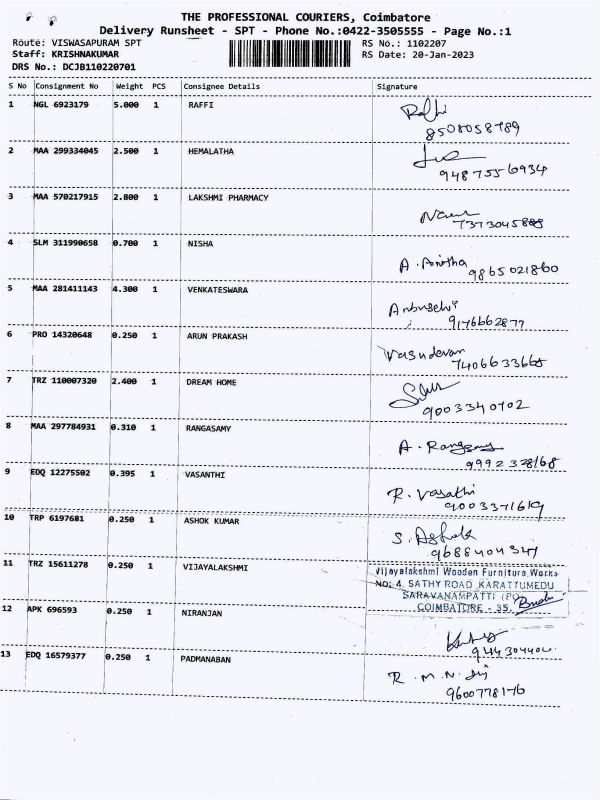 THE PROFESSIONAL COURIERS, Coimbatore
Delivery Runsheet - SPT - Phone No.:0422-3505555 - Page No.:1
Route: VISWASAPURAM SPT RS No.: 1102207
Staff: KRISHNAKUMAR RS Date: 20-Jan-2023
DRS No.: DCJB110220701
S No Consignment No Weight PCS Consignee Details Signature
1 NGL 6923179 5.000 1 RAFFI
8508058789
2 MAA 299334045 2.500 1 HEMALATHA
9487556934
3 MAA 570217915 2.800 1 LAKSHMI PHARMACY
4 SLM 311990658 0.700 1 NISHA
A. Anitha
9865021860
5 MAA 281411143 4.300 1 VENKATESWARA
Anbuselvi
9176662877
6 PRO 14320648 0.250 1 ARUN PRAKASH
Vasudevan
7406633668
7 TRZ 110007320 2.400 1 DREAM HOME
9003340702
8 MAA 297784931 0.310 1 RANGASAMY
A. Rangasamy
9992328168
9 EDQ 12275502 0.395 1 VASANTHI
R. Vasathi
9003371619
10 TRP 6197681 0.250 1 ASHOK KUMAR
S. Ashok
9688404347
11 TRZ 15611278 0.250 1 VIJAYALAKSHMI
Vijayalakshmi Wooden Furniture Works
NO: 4, SATHY ROAD KARATTUMEDU
SARAVANAMPATTI (PO
COIMBATORE - 35.
12 APK 696593 0.250 1 NIRANJAN
944304404
13 EDQ 16579377 0.250 1 PADMANABAN
R. M. N.
9600778176